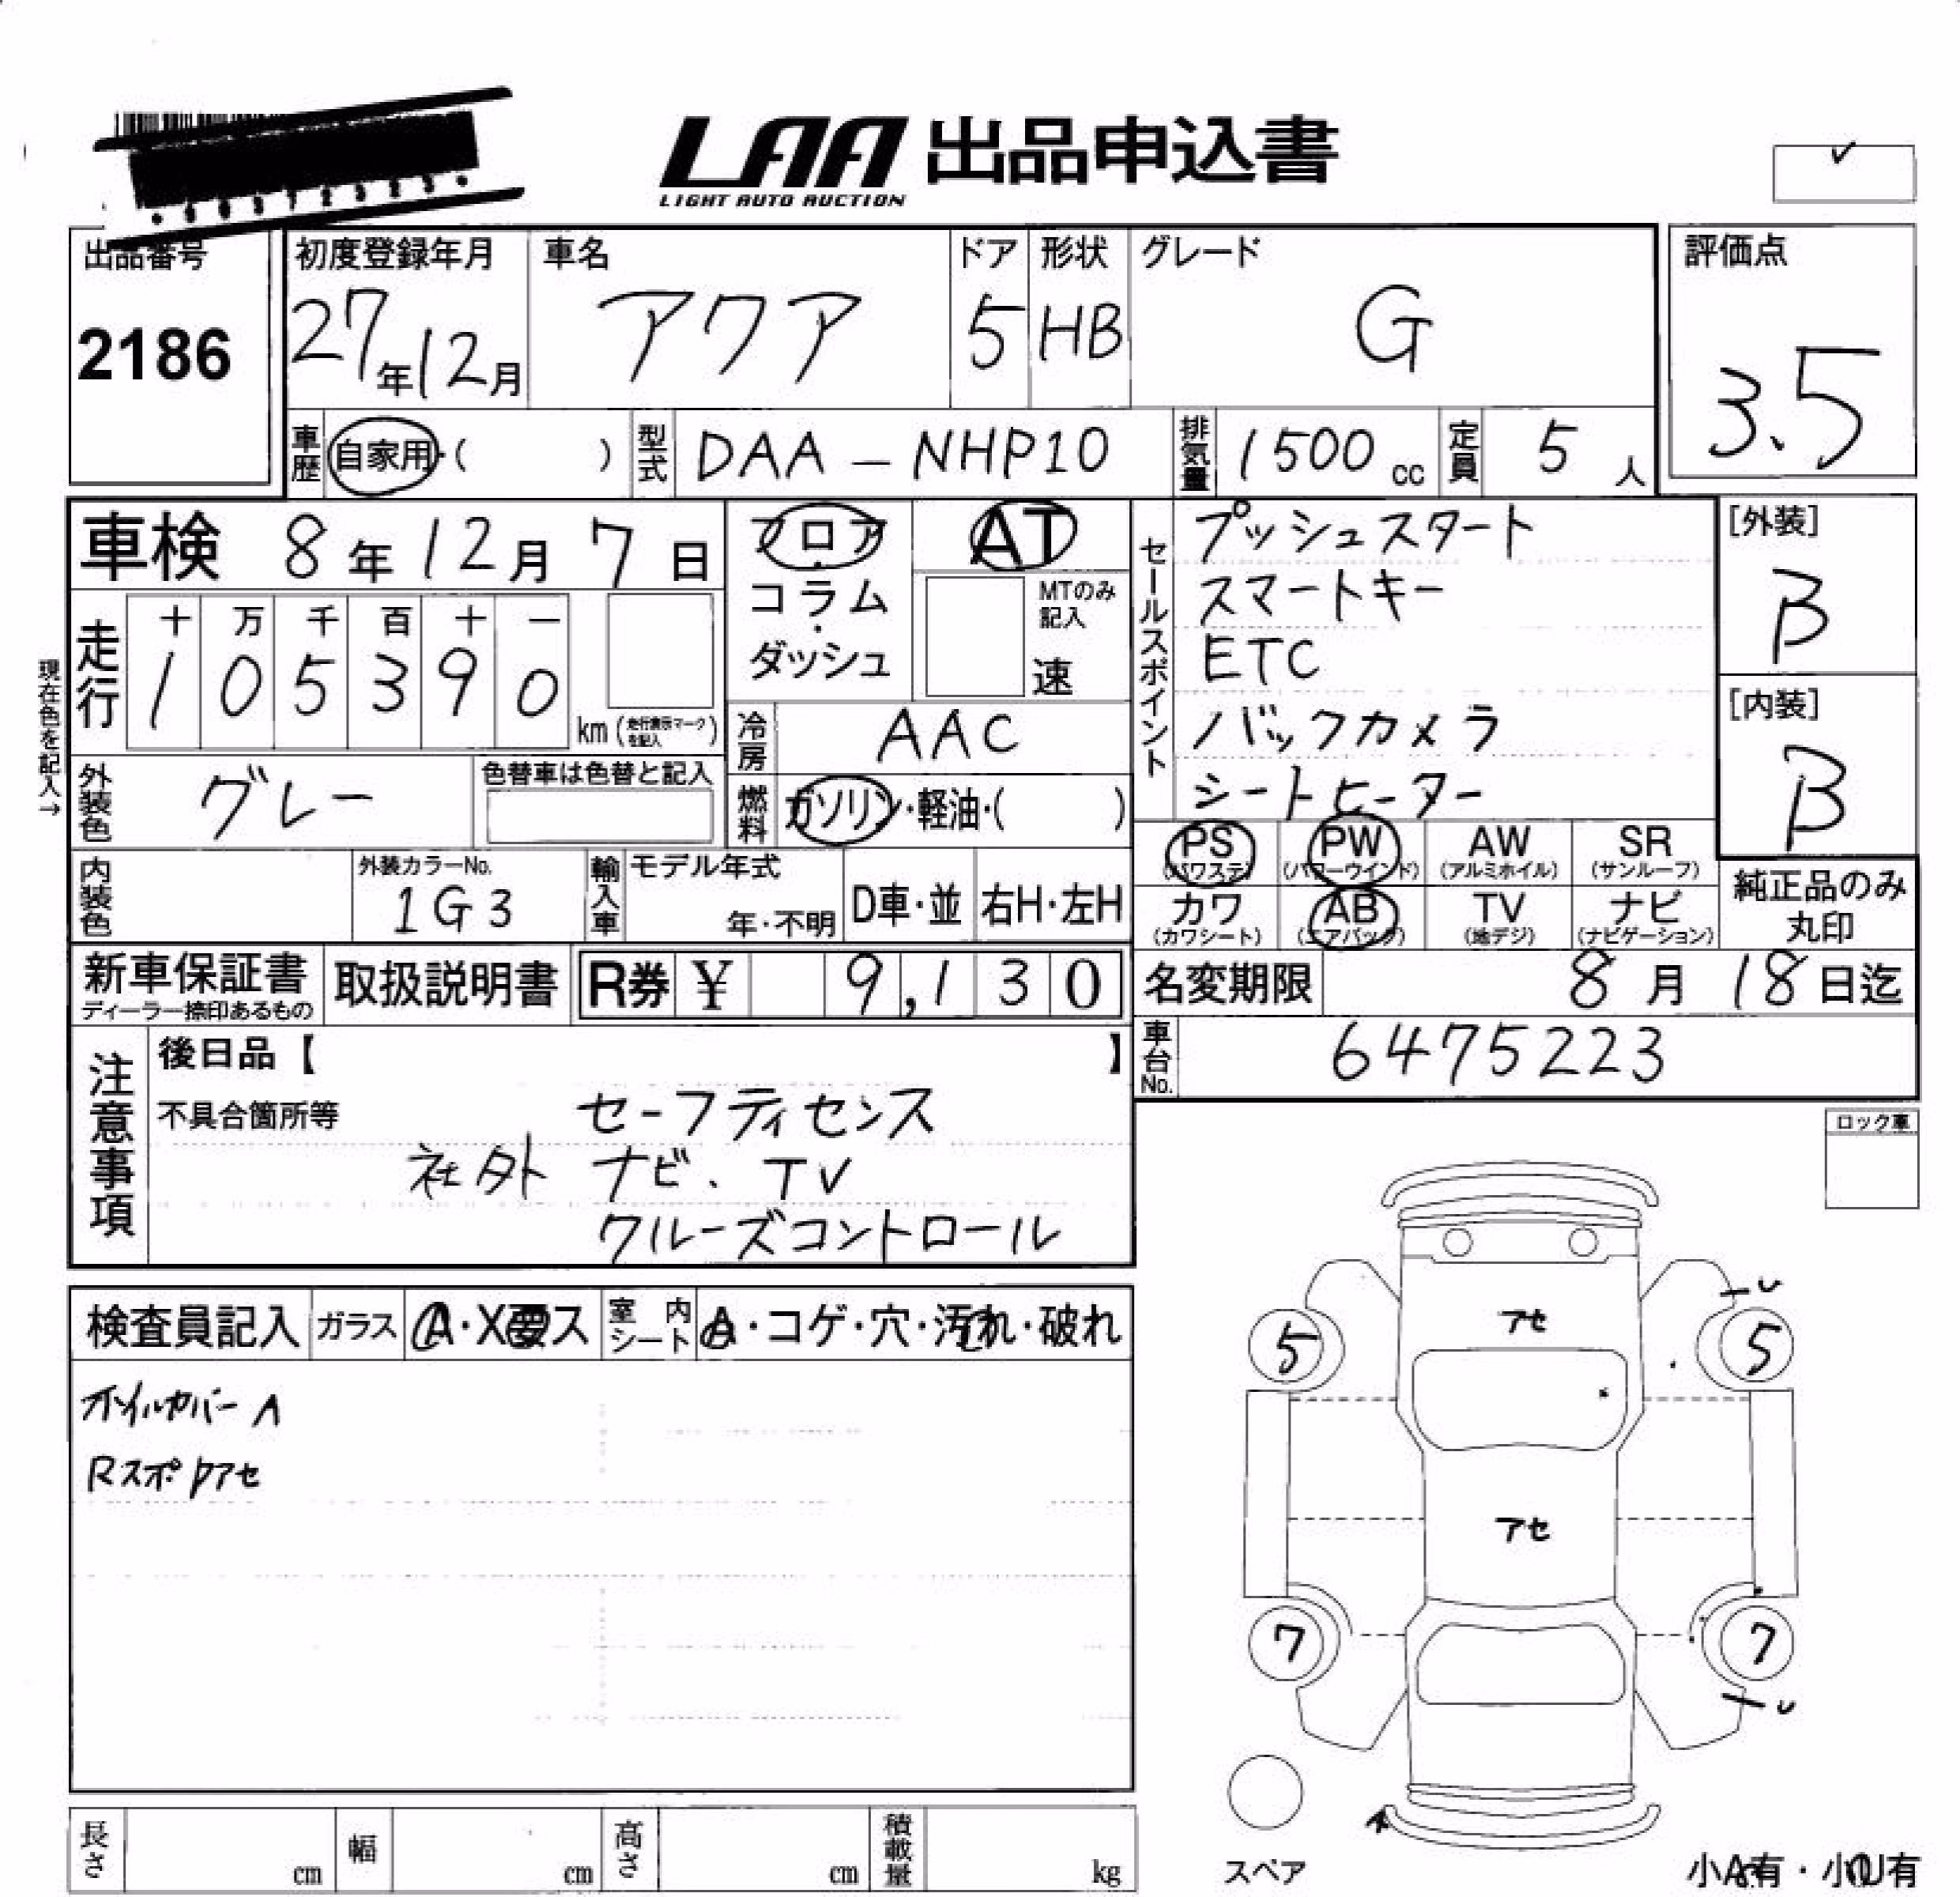 LAA 出品申込書
LIGHT AUTO AUCTION
出品番号
2186
初度登録年月
27年12月
車名
アクア
ドア
5
形状
HB
グレード
G
評価点
3.5
車歴 自家用・( )
型式 DAA-NHP10
排気量 1500cc
定員 5人
車検 8年12月7日
フロア・コラム・ダッシュ
AT
MTのみ記入
速
セールスポイント
プッシュスタート
スマートキー
ETC
バックカメラ
シートヒーター
[外装]
B
[内装]
B
現在色を記入→
走行
十 万 千 百 十 一
1 0 5 3 9 0
km (走行表示マークを記入)
冷房 AAC
外装色 グレー
色替車は色替と記入
燃料 ガソリン・軽油・( )
PS (パワステ)
PW (パワーウインド)
AW (アルミホイル)
SR (サンルーフ)
カワ (カワシート)
AB (エアバック)
TV (地デジ)
ナビ (ナビゲーション)
純正品のみ丸印
内装色
外装カラーNo.
1G3
輸入車
モデル年式
年・不明
D車・並
右H・左H
新車保証書
ディーラー捺印あるもの
取扱説明書
R券 ¥ 9,130
名変期限 8月18日迄
車台No. 6475223
注意事項
後日品【 】
不具合箇所等
セーフティセンス
社外 ナビ、TV
クルーズコントロール
ロック車
検査員記入
ガラス A・X要ス
室内シート A・コゲ・穴・汚れ・破れ
オイルカバーA
Rスポアセ
アセ
5
5
アセ
7
7
スペア
小A有・小U有
長さ cm
幅 cm
高さ cm
積載量 kg